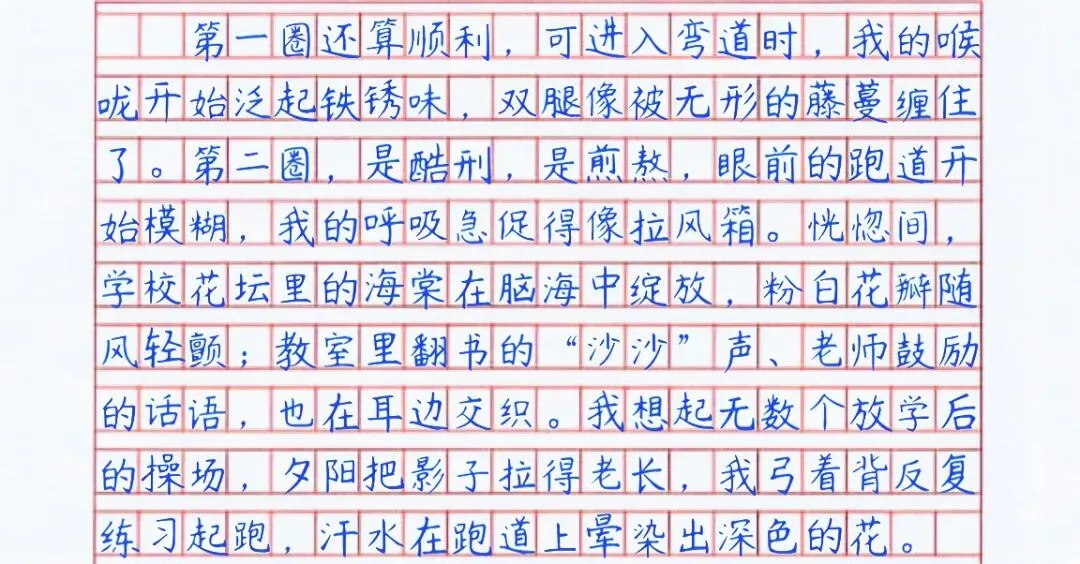 第一圈还算顺利，可进入弯道时，我的喉
咙开始泛起铁锈味，双腿像被无形的藤蔓缠住
了。第二圈，是酷刑，是煎熬，眼前的跑道开
始模糊，我的呼吸急促得像拉风箱。恍惚间，
学校花坛里的海棠在脑海中绽放，粉白花瓣随
风轻颤；教室里翻书的“沙沙”声、老师鼓励
的话语，也在耳边交织。我想起无数个放学后
的操场，夕阳把影子拉得老长，我弓着背反复
练习起跑，汗水在跑道上晕染出深色的花。